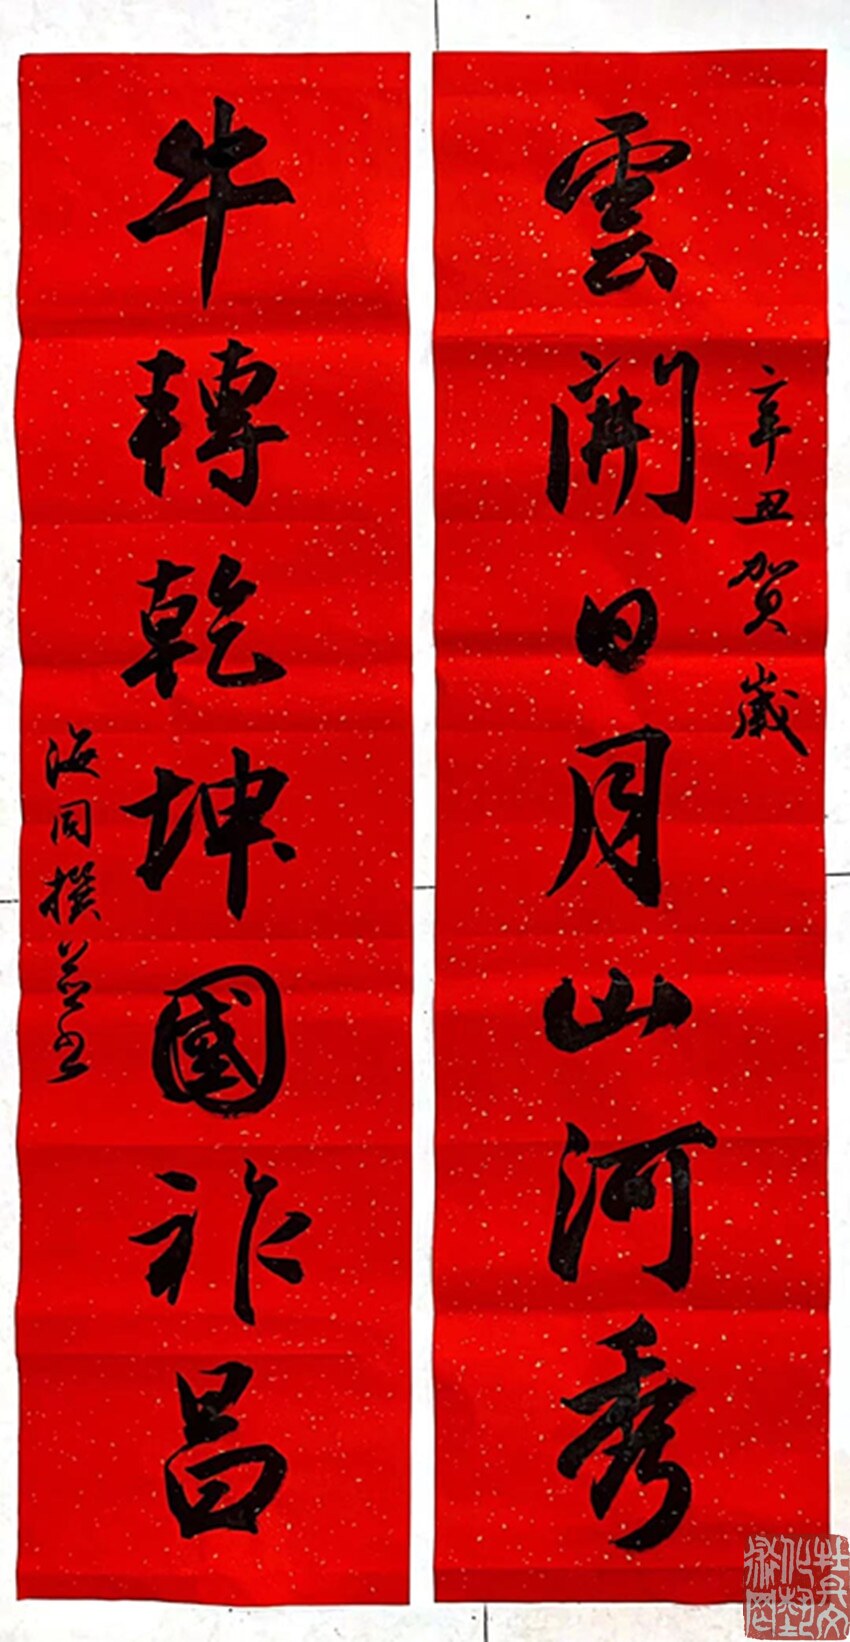 雲開日月山河秀
辛丑賀歲
牛轉乾坤國祚昌
海同撰并书